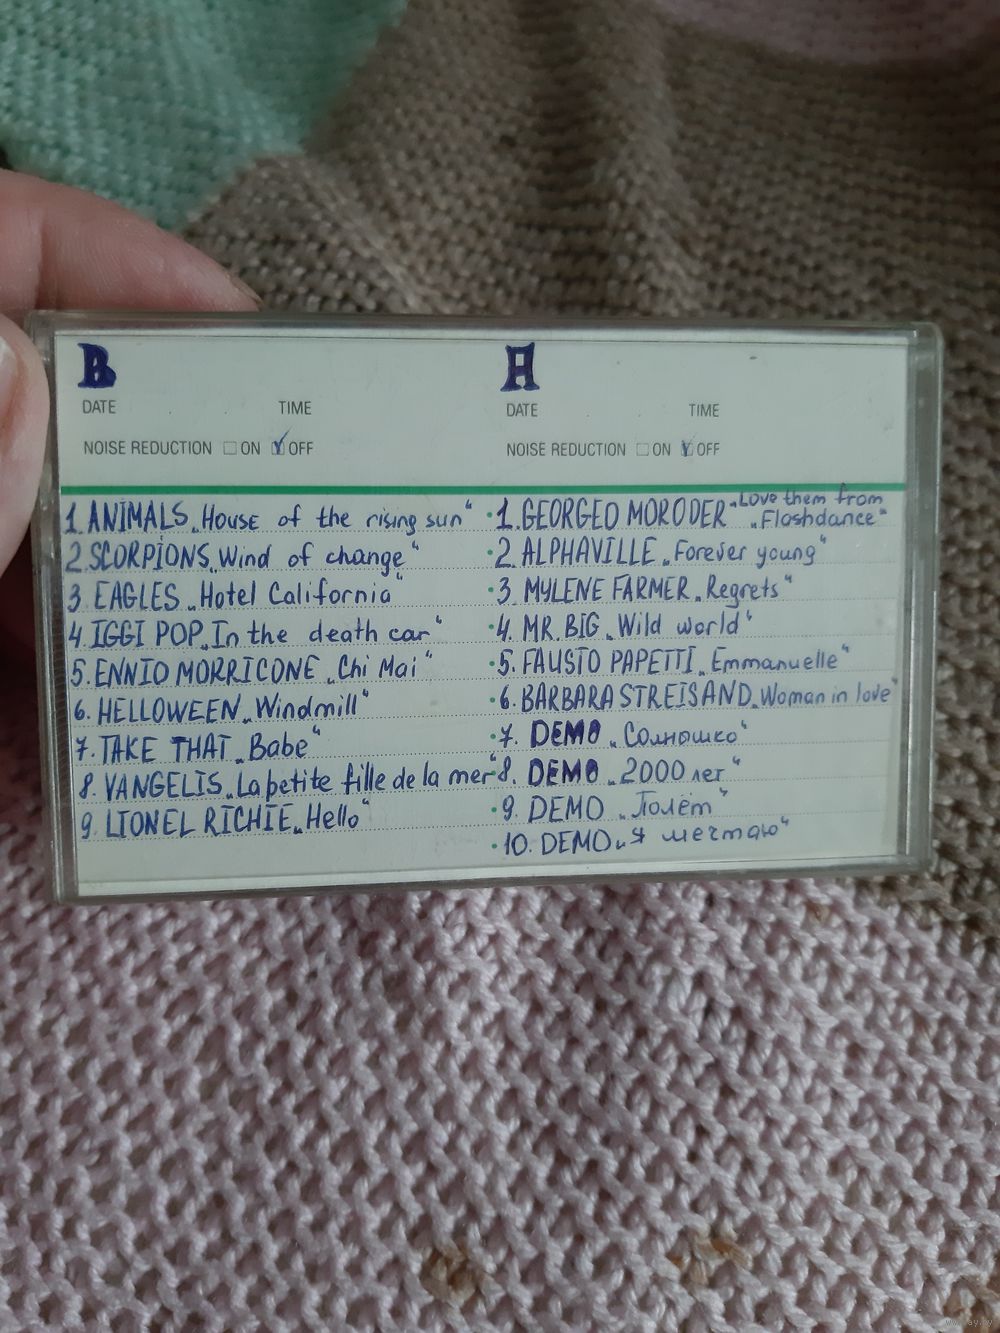 B
DATE TIME
NOISE REDUCTION ON OFF
1. ANIMALS „House of the rising sun“
2. SCORPIONS „Wind of change“
3. EAGLES „Hotel California“
4. IGGI POP „In the death car“
5. ENNIO MORRICONE „Chi Mai“
6. HELLOWEEN „Windmill“
7. TAKE THAT „Babe“
8. VANGELIS „La petite fille de la mer“
9. LIONEL RICHIE „Hello“
A
DATE TIME
NOISE REDUCTION ON OFF
1. GEORGEO MORODER „Love them from
„Flashdance“
2. ALPHAVILLE „Forever young“
3. MYLENE FARMER „Regrets“
4. MR. BIG „Wild world“
5. FAUSTO PAPETTI „Emmanuelle“
6. BARBARA STREISAND „Woman in love“
7. DEMO „Солнышко“
8. DEMO „2000 лет“
9. DEMO „Полёт“
10. DEMO „Я мечтаю“